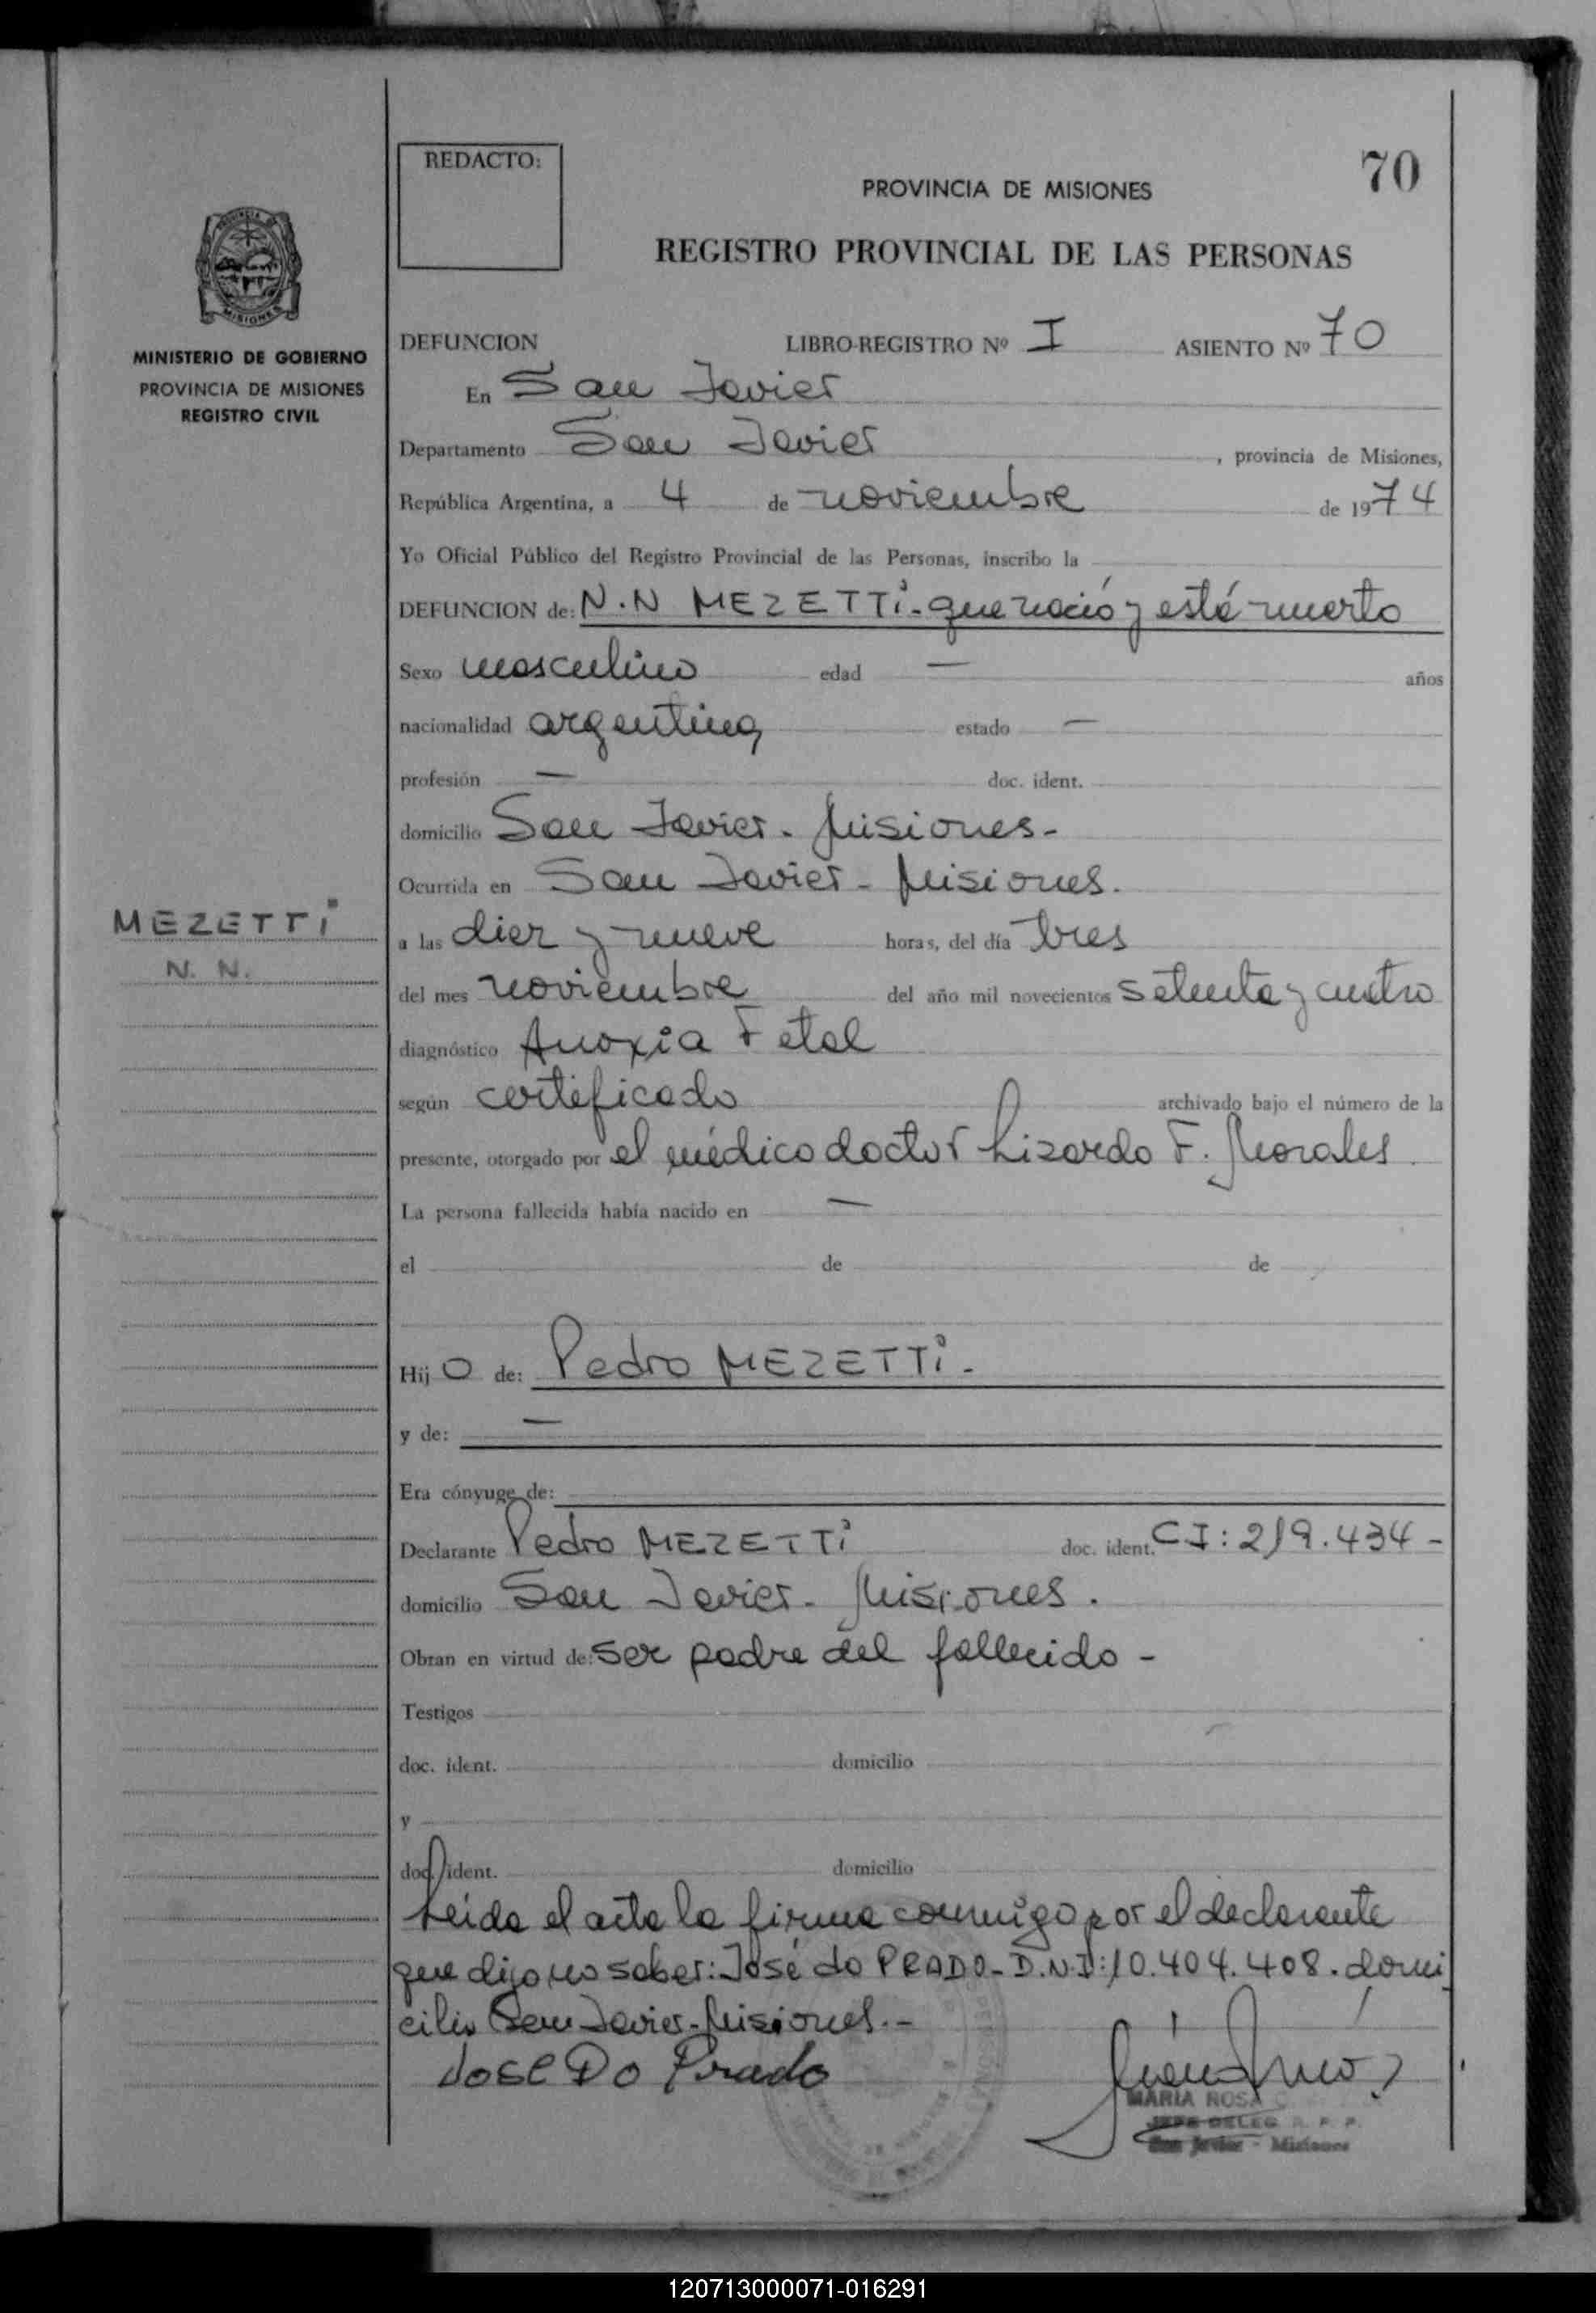 70
REDACTO:
PROVINCIA DE MISIONES
REGISTRO PROVINCIAL DE LAS PERSONAS
MISIONES
MINISTERIO DE GOBIERNO
PROVINCIA DE MISIONES
REGISTRO CIVIL
DEFUNCION LIBRO-REGISTRO Nº I ASIENTO Nº 70
En San Javier
Departamento San Javier, provincia de Misiones,
República Argentina, a 4 de noviembre de 1974
Yo Oficial Público del Registro Provincial de las Personas, inscribo la
DEFUNCION de: N.N MEZETTi - que nació y está muerto
Sexo masculino edad — años
nacionalidad argentina estado —
profesión — doc. ident.
domicilio San Javier - Misiones -
Ocurrida en San Javier - Misiones.
MEZETTi
N. N.
a las diez y nueve horas, del día tres
del mes noviembre del año mil novecientos setenta y cuatro
diagnóstico Anoxia Fetal
según certificado archivado bajo el número de la
presente, otorgado por el médico doctor Lizardo F. Morales.
La persona fallecida había nacido en —
el de de
Hijo de: Pedro MEZETTi -
y de: —
Era cónyuge de:
Declarante Pedro MEZETTi doc. ident. CI: 219.434 -
domicilio San Javier - Misiones.
Obran en virtud de: ser padre del fallecido -
Testigos
doc. ident. domicilio
y
doc. ident. domicilio
Leida el acta la firma conmigo por el declarante
que dijo no saber: José do PRADO - D.N.I: 10.404.408. domi
cilio San Javier - Misiones. -
José Do Prado
MARIA ROSA
JEFE DELEG R. P. P.
San Javier - Misiones
120713000071-016291